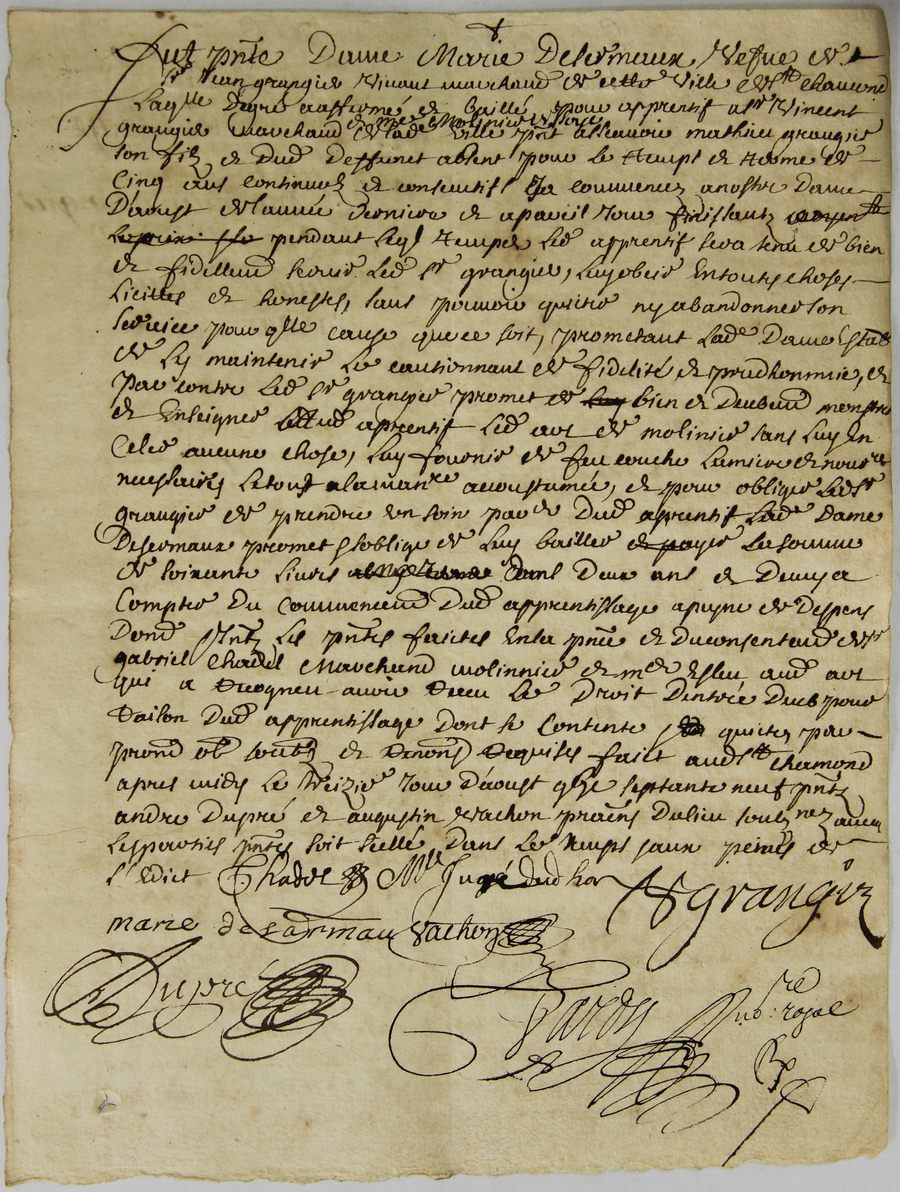 Fut pnte Dame Marie Desermaux Vefue de
sr Jean grangier Vivant marchand de cette Ville de St Chamond
Laqlle de gré a affermé et baillé pour apprentif a sr Vincent
me Molinier
grangier marchand de lade Ville pnt ascavoir mathieu grangier
son filz et dud deffunct absent pour le temps et terme de
Cinq ans continuelz et consecutifs Ja commencez a nostre dame
Daoust de lannée derniere et a pareil Jour finissantz
pendant leql temps led apprentif sera tenu de bien
et fidellemt servir led sr grangier, Luy obeir En toutes choses
Licittes et honestes, sans pouvoir quitter ny abandonner son
service pour qlle cause que ce soit, prometant lade Dame
de Luy maintenir Le cautionnant de fidelité et prudhommie, et
par contre Led sr grangier promet de bien et deubemt monstrer
et Enseigner aud aprentif Led art de molinier sans Luy En
Celer aucune chose, Luy fournir de feu couche Lumiere et nourre
necessaires Le tout a la manre acoustumée, et pour obliger Led sr
grangier de prendre un soin par dud aprentif Lade Dame
Desermaux promet s'oblige de Luy bailler et payer La somme
de soixante Livres dans Deux ans et Demy a
Compter Du commencemt Dud apprentissage a peyne de Despens
Dont Les pntes faictes En la pnce et du consentemt de sr
gabriel Chadel Marchand molinnier et me Esleu aud art
qui a Recogneu avoir Receu Le Droit Dentrée Deub pour
Raison Dud apprentissage dont se Contente quicte par
promt obl soubz et Renonc Requises faict aud St Chamond
apres midy Le treizie Jour Daoust gbze septante neuf pntz
andre Dupré et augustin Vachon prac̃ens Dulieu soubznez avec
Les parties pntes soit scellé Dans Le temps
L'edict Chadel Mre Juré dud
V grangier
marie desarmau Vachon
Dupré
Pardy
not.re royal